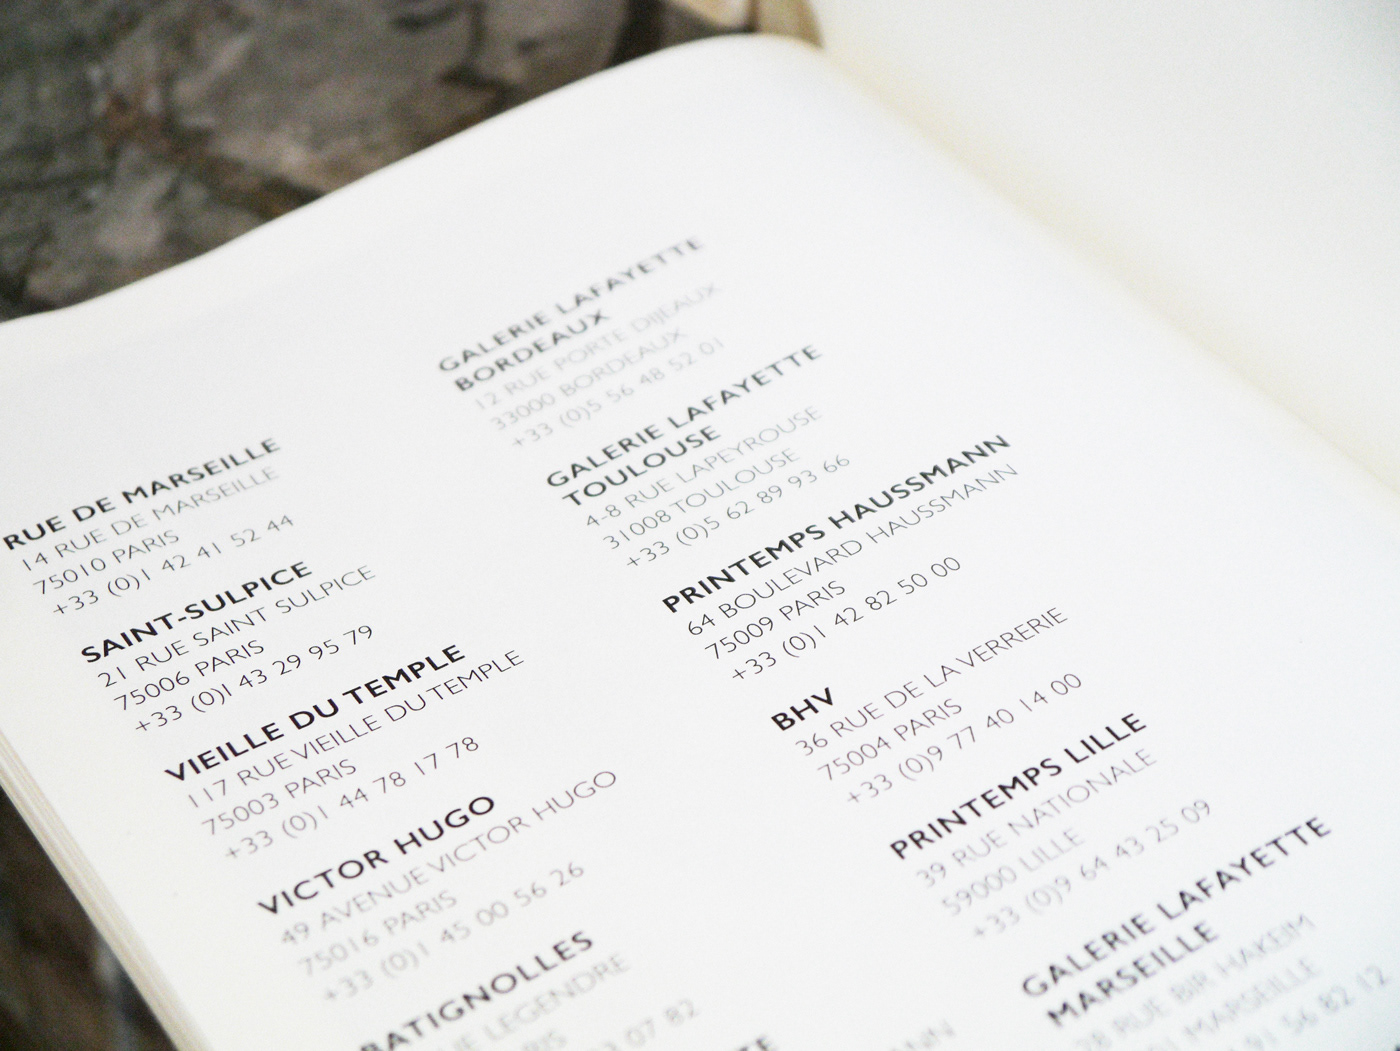 RUE DE MARSEILLE
14 RUE DE MARSEILLE
75010 PARIS
+33 (0)1 42 41 52 44
SAINT-SULPICE
21 RUE SAINT SULPICE
75006 PARIS
+33 (0)1 43 29 95 79
VIEILLE DU TEMPLE
117 RUE VIEILLE DU TEMPLE
75003 PARIS
+33 (0)1 44 78 17 78
VICTOR HUGO
49 AVENUE VICTOR HUGO
75016 PARIS
+33 (0)1 45 00 56 26
BATIGNOLLES
LEGENDRE
07 82
GALERIE LAFAYETTE
BORDEAUX
12 RUE PORTE DIJEAUX
33000 BORDEAUX
+33 (0)5 56 48 52 01
GALERIE LAFAYETTE
TOULOUSE
4-8 RUE LAPEYROUSE
31008 TOULOUSE
+33 (0)5 62 89 93 66
PRINTEMPS HAUSSMANN
64 BOULEVARD HAUSSMANN
75009 PARIS
+33 (0)1 42 82 50 00
BHV
36 RUE DE LA VERRERIE
75004 PARIS
+33 (0)9 77 40 14 00
PRINTEMPS LILLE
39 RUE NATIONALE
59000 LILLE
+33 (0)9 64 43 25 09
GALERIE LAFAYETTE
MARSEILLE
RUE BIR HAKEIM
MARSEILLE
91 56 82 12